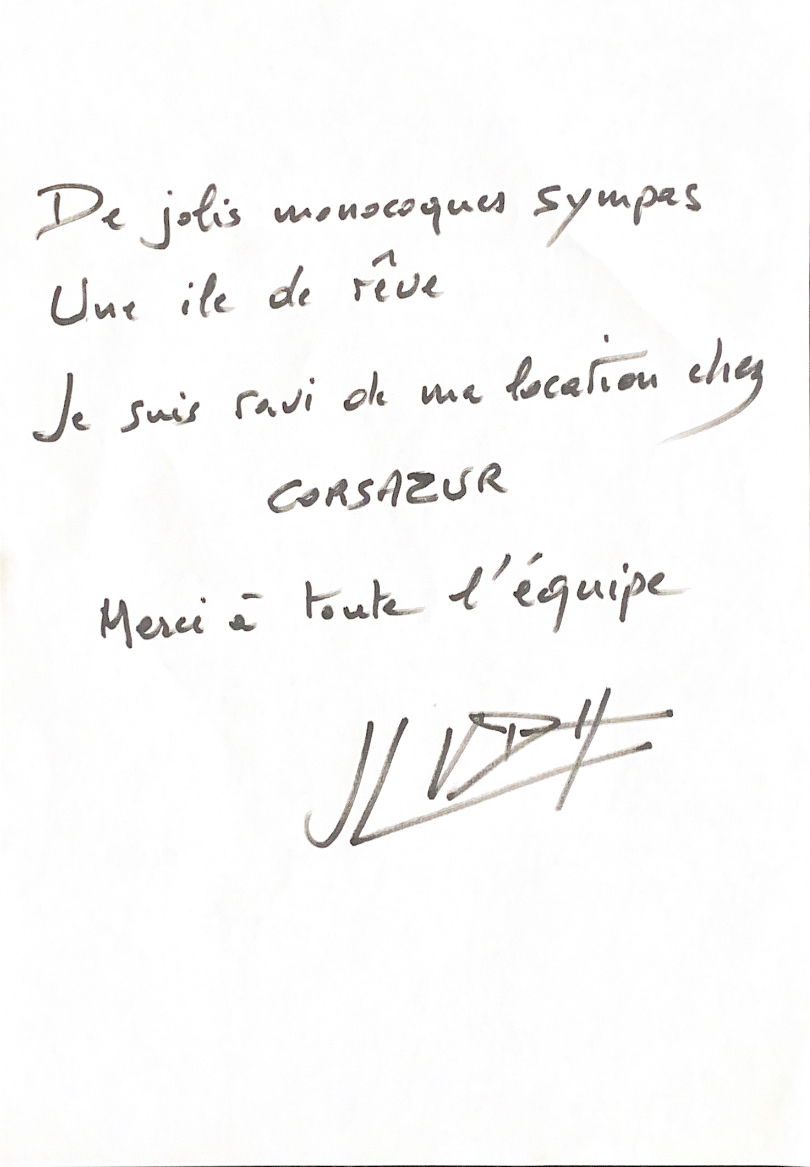 De jolis monocoques sympas
Une ile de rêve
Je suis ravi de ma location chez
CORSAZUR
Merci à toute l'équipe